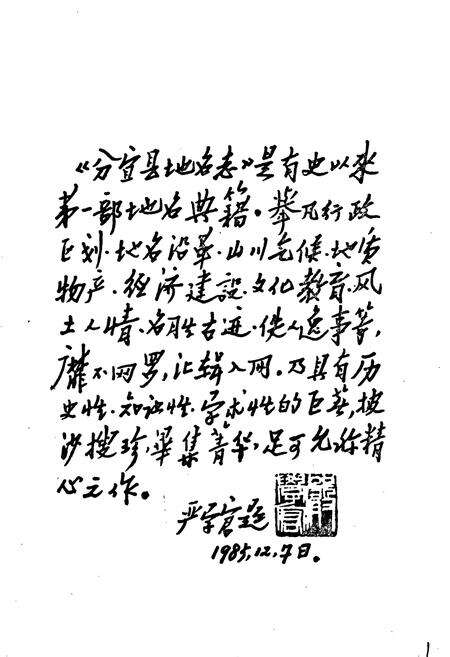 《分宜县地名志》是有史以来
第一部地名典籍。举凡行政
区划、地名沿革、山川气候、地质
物产、经济建設、文化教育、风
土人情、名胜古迹、佚人逸事等，
靡不网罗，汇辑入网。乃具有历
史性、知识性、学术性的巨著，披
沙搜珍，畢集菁华，足可允称精
心之作。
严学宭题
1985.12.7日。
1